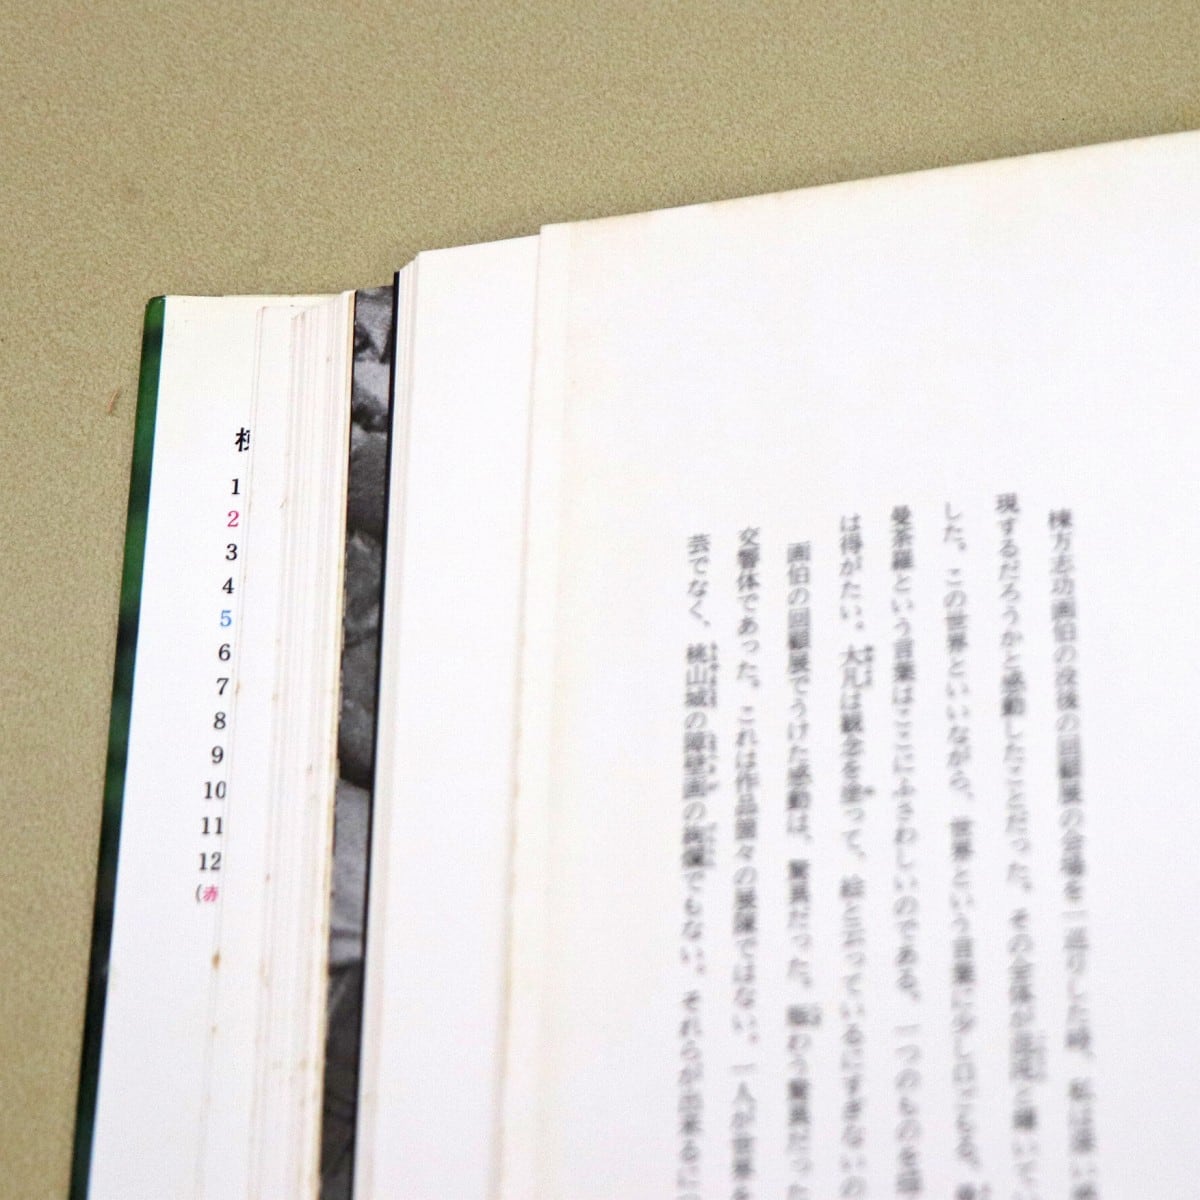 棟方志功画伯の没後の回顧展の会場を一巡りした時、私は
現するだろうかと感動したことだった。その全体が
した。この世界といいながら、世界という言葉に少し口ごもる。
曼荼羅という言葉はここにふさわしいのである。一つのものを
は得がたい。大凡は観念を塗って、絵と云っているにすぎないの
画伯の回顧展でうけた感動は、驚異だった。賑わう驚異だった
交響体であった。これは作品個々の展陳ではない。一人が世界を
芸でなく、桃山城の障壁画の絢爛でもない。それらが出来るだ
1
2
3
4
5
6
7
8
9
10
11
12
(赤